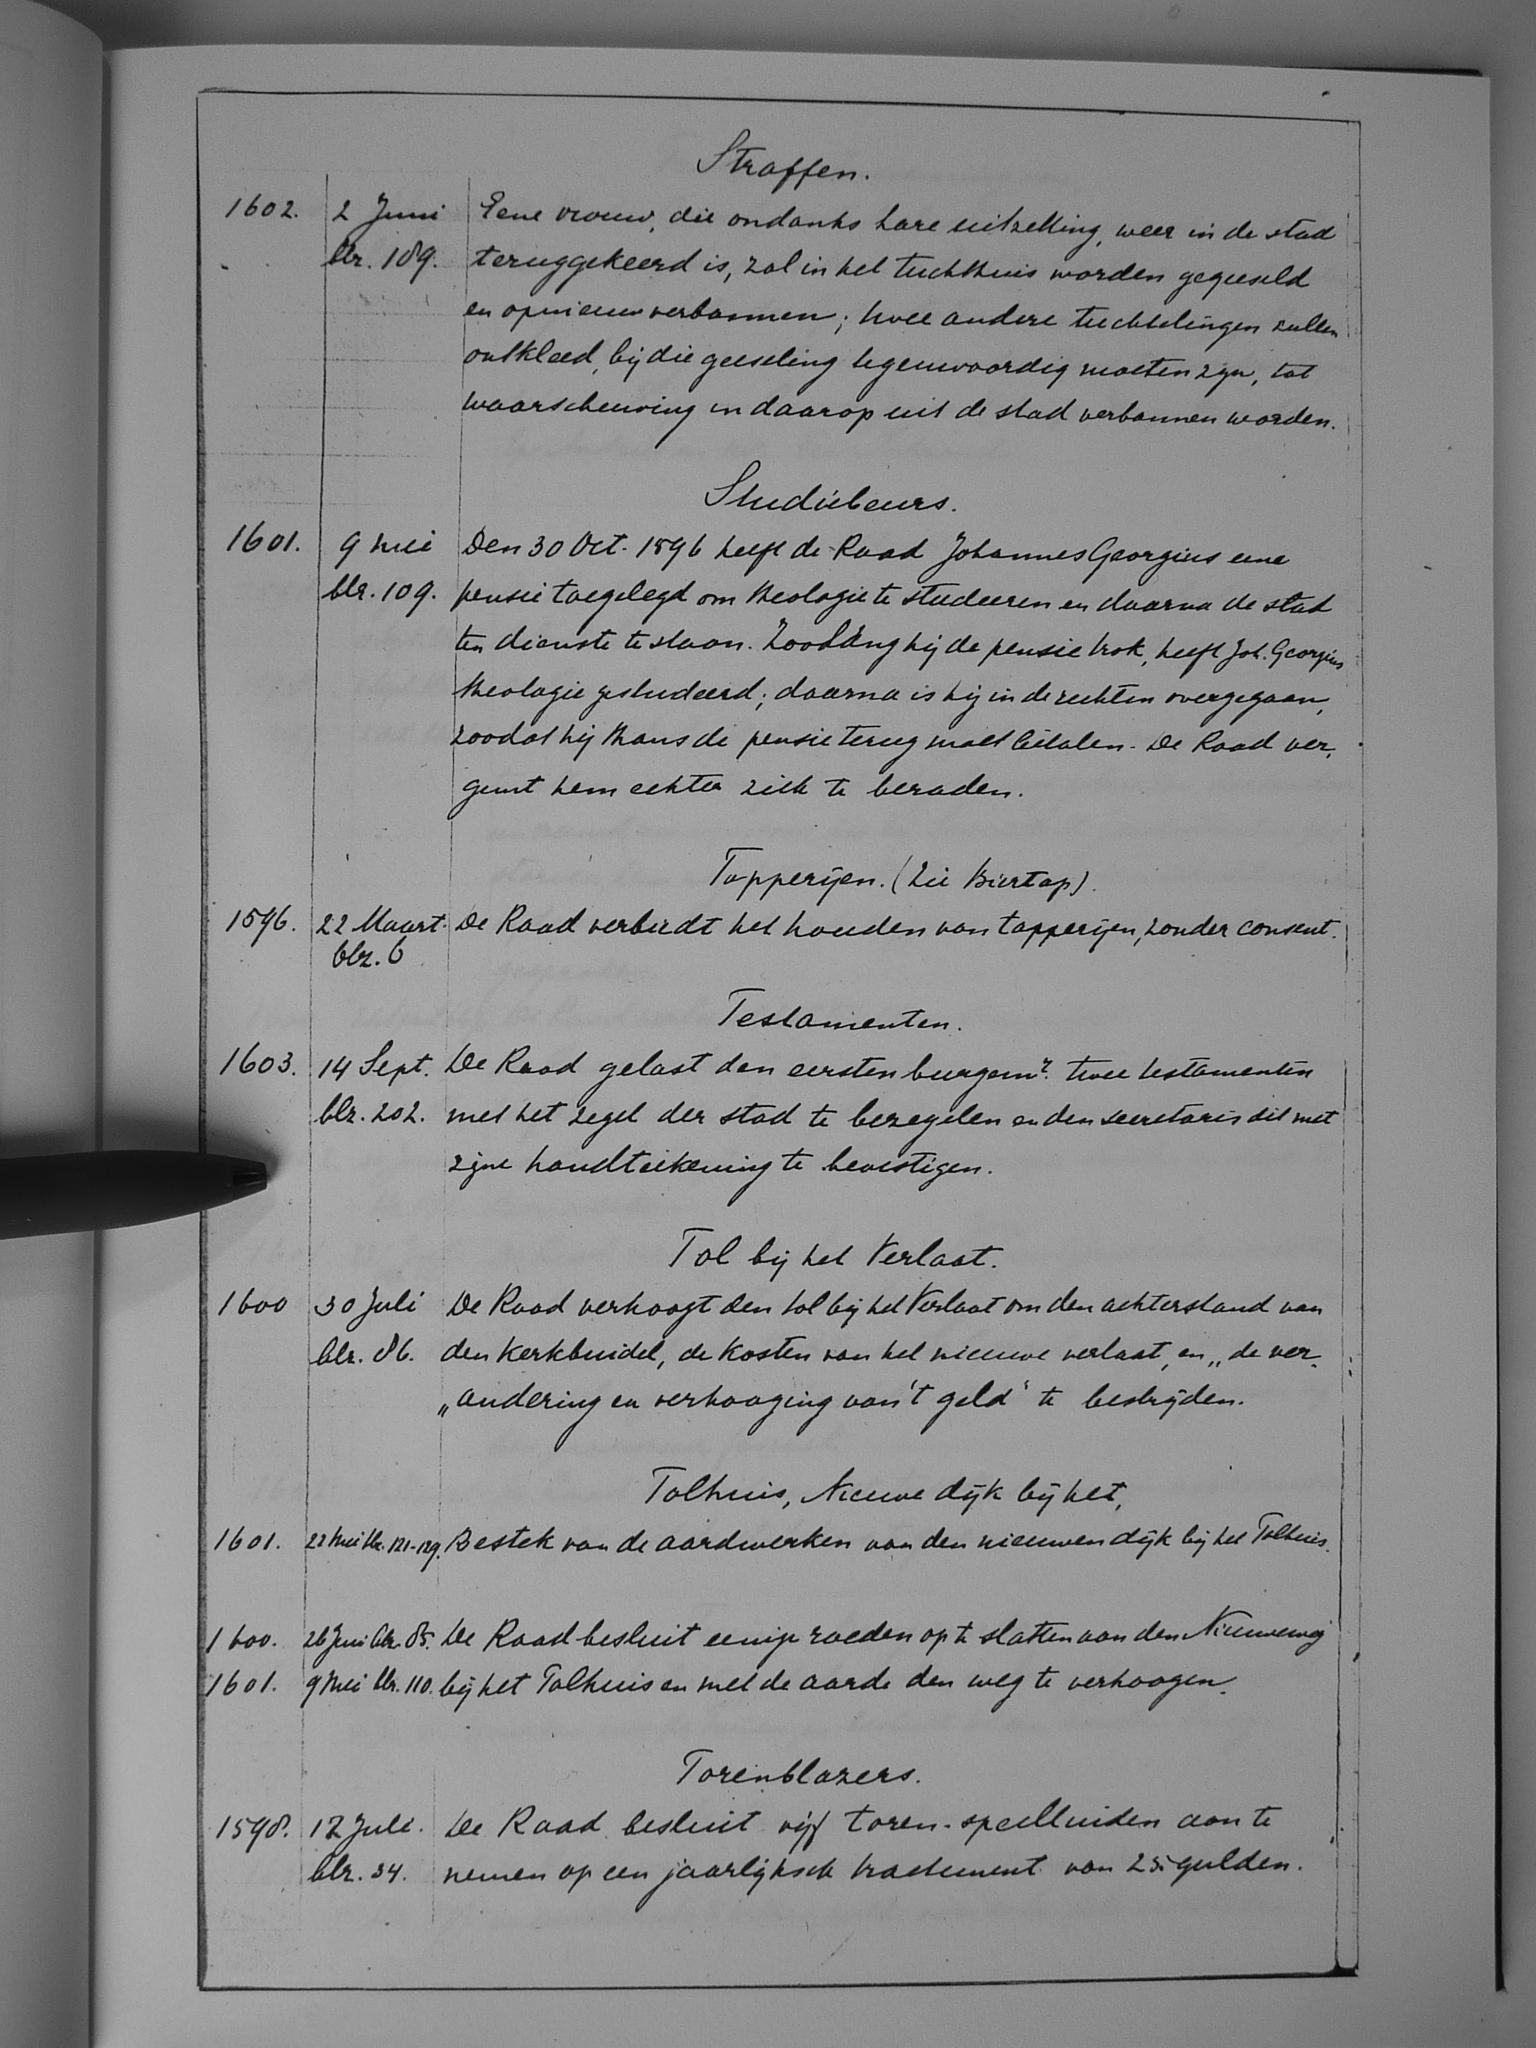 Straffen.
1602. 2 Juni Eene vrouw, die ondanks hare uitzetting, weer in de stad
blz. 189. teruggekeerd is, zal in het tuchthuis worden gegeeseld
en opnieuw verbannen; twee andere tuchtelingen zullen
ontkleed, bij die geeseling tegenwoordig moeten zijn, tot
waarschuwing en daarop uit de stad verbannen worden.
Studiebeurs.
1601. 9 Mei Den 30 Oct. 1596 heeft de Raad Johannes Georgius eene
blz. 109. pensie toegelegd om theologie te studeeren en daarna de stad
ten dienste te staan. Zoolang hij de pensie trok, heeft Joh. Georgius
theologie gestudeerd; daarna is hij in de rechten overgegaan,
zoodat hij thans de pensie terug moet betalen. De Raad ver-
gunt hem echter zich te beraden.
Tapperijen. (Zie Biertap).
1596. 22 Maart. De Raad verbiedt het houden van tapperijen, zonder consent.
blz. 6
Testamenten.
1603. 14 Sept. De Raad gelast den eersten burgemr. twee testamenten
blz. 202. met het zegel der stad te bezegelen en den secretaris dit met
zijne handteekening te bevestigen.
Tol bij het Verlaat.
1600 30 Juli De Raad verhoogt den tol bij het Verlaat om den achterstand van
blz. 86. den Kerkbuidel, de kosten van het nieuwe verlaat, en „de ver-
„andering en verhooging van 't geld" te bestrijden.
Tolhuis, Nieuwe dijk bij het,
1601. 22 Mei blz. 121-129. Bestek van de aardwerken van den nieuwen dijk bij het Tolhuis.
1600. 26 Juni blz. 85. De Raad besluit eenige roeden op te slatten aan den Nieuweweg
1601. 9 Mei blz. 110. bij het Tolhuis en met de aarde den weg te verhoogen.
Torenblazers.
1598. 12 Juli. De Raad besluit vijf toren-speelluiden aan te
blz. 34. nemen op een jaarlijksch tractement van 25 gulden.